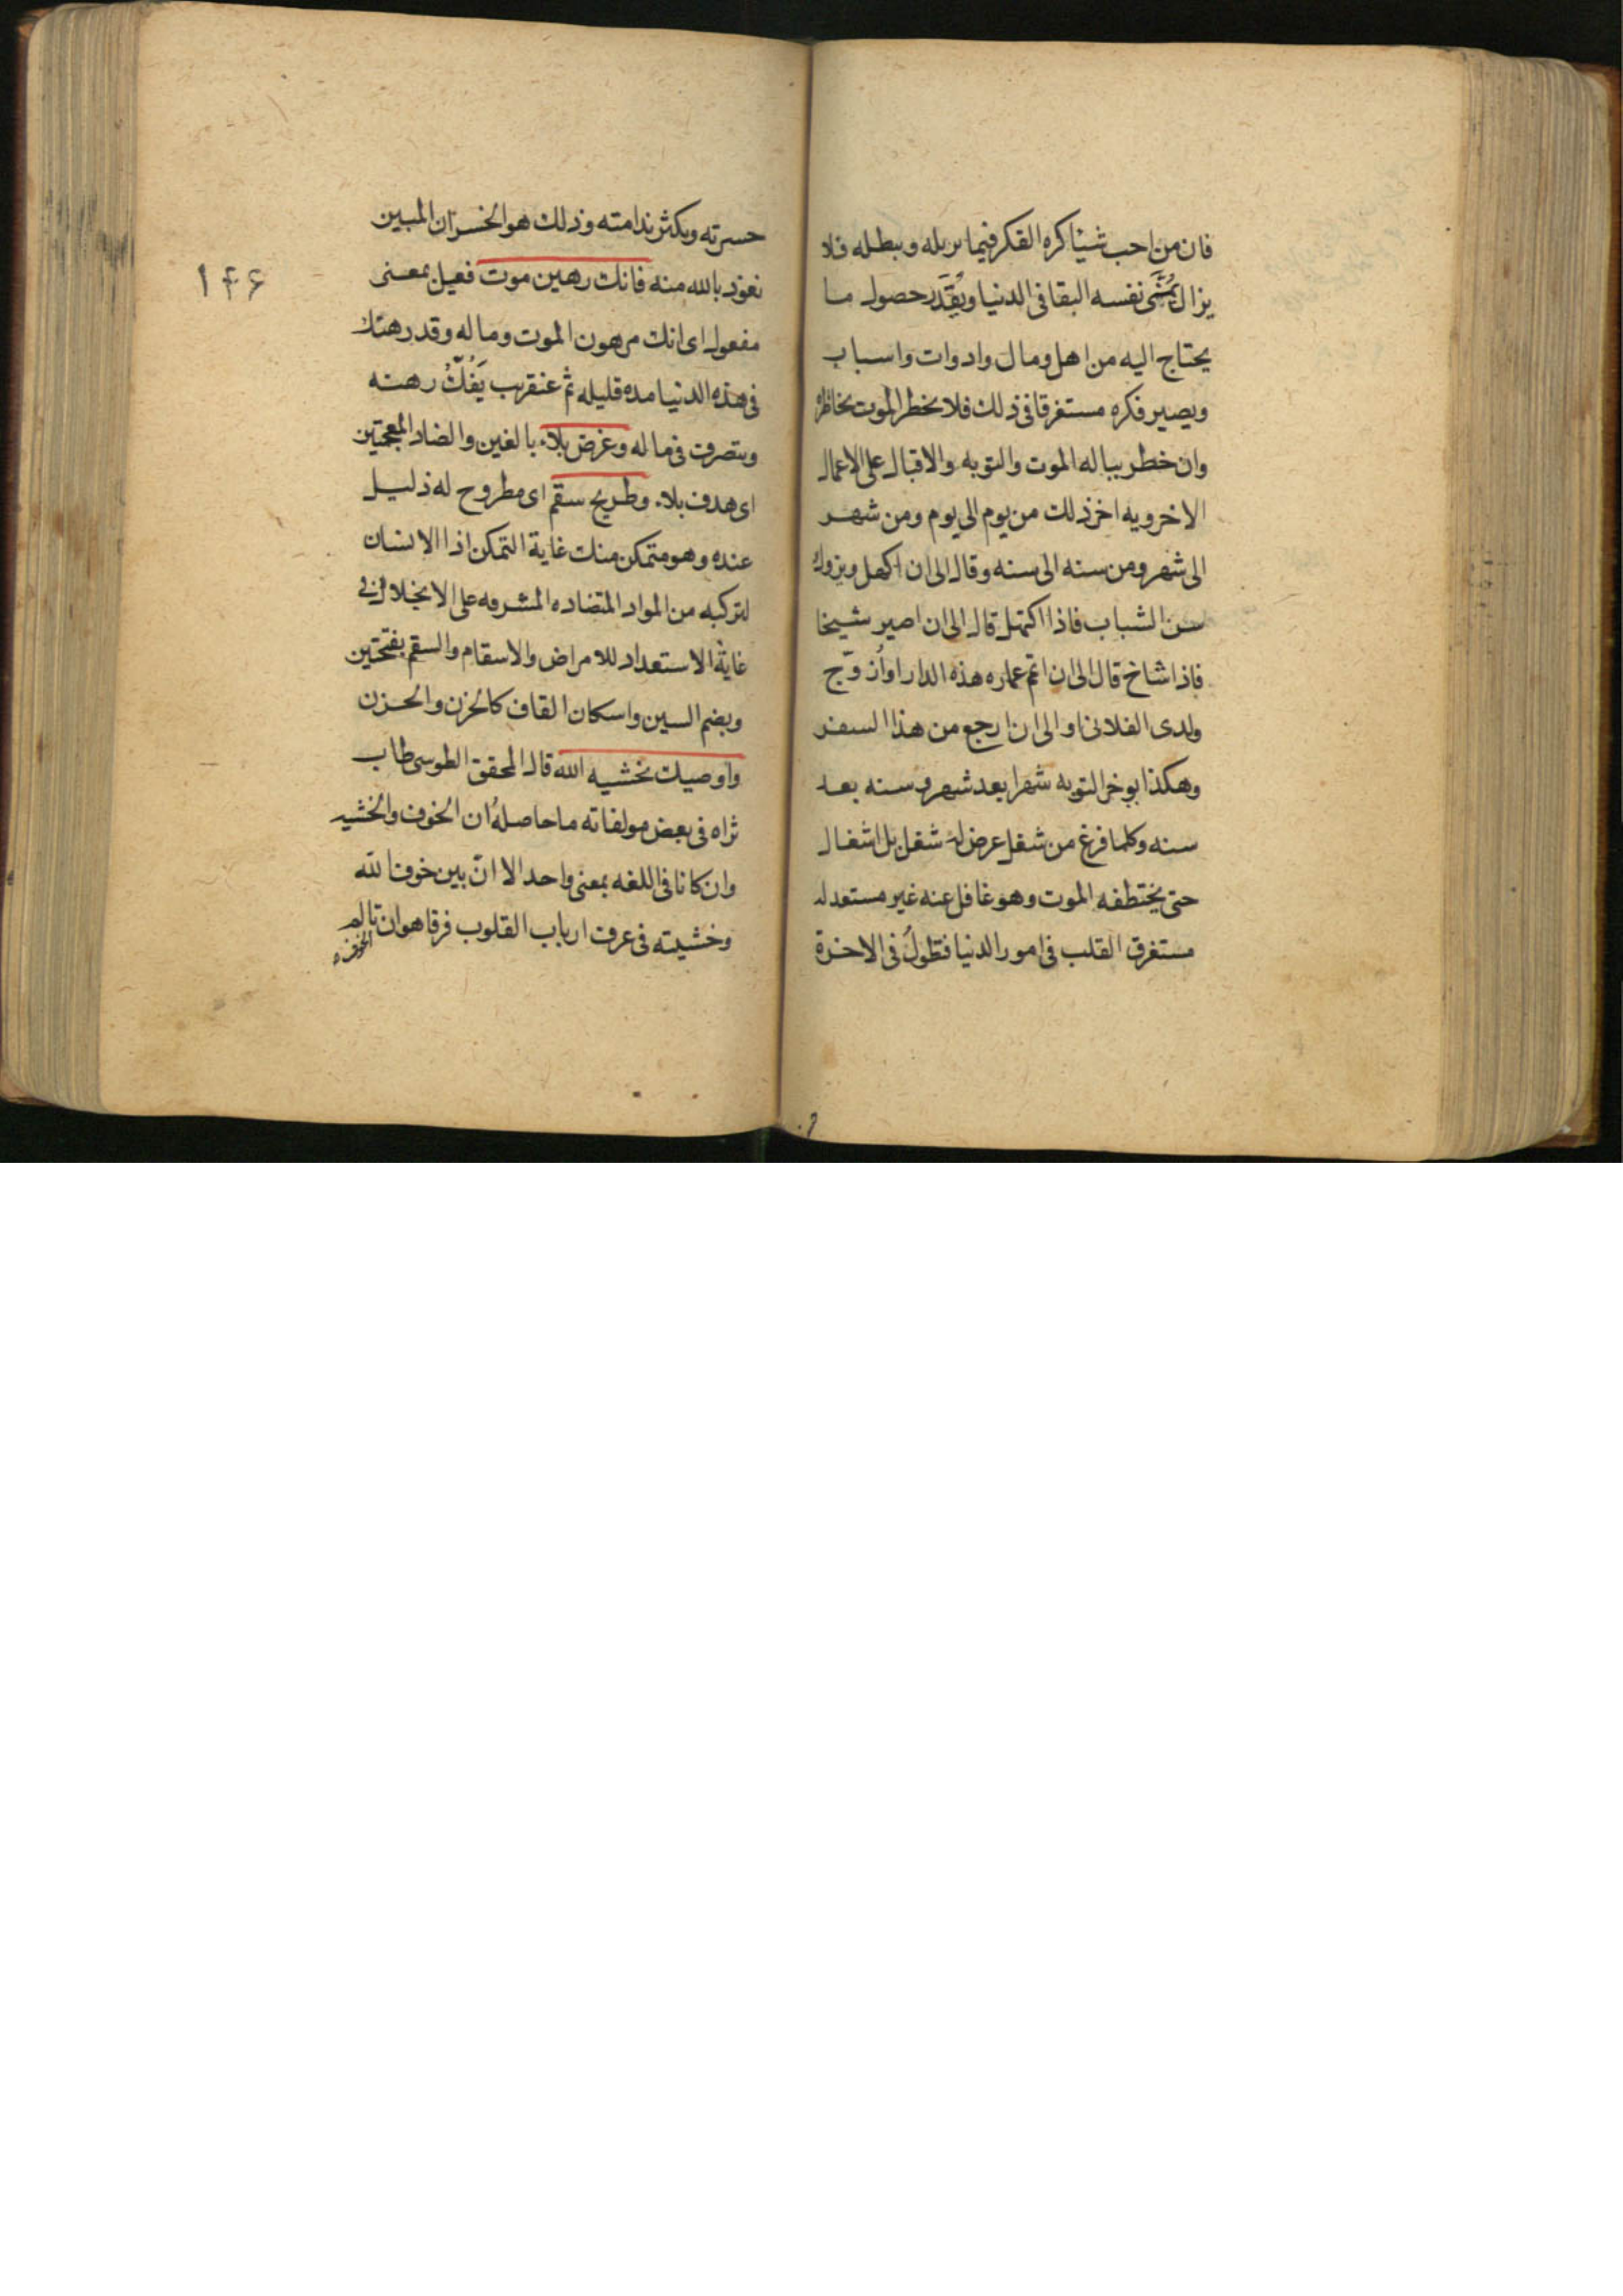 فان من احب شيئا كره الفكر فيما يزيله ويبطله فلا
يزال يُمَنّى نفسه البقا فى الدنيا ويُقَدِّر حصول ما
يحتاج اليه من اهل ومال وادوات واسباب
ويصير فكره مستغرقا فى ذلك فلا يخطر الموت بخاطره
وان خطر بباله الموت والتوبه والاقبال على الاعمال
الاخرويه اخر ذلك من يوم الى يوم ومن شهر
الى شهر ومن سنه الى سنه وقال الى ان اكهل ويزول
سن الشباب فاذا اكتهل قال الى ان اصير شيخا
فاذا شاخ قال الى ان اتم عماره هذه الدار او اُزوّج
ولدى الفلانى او الى ان ارجع من هذا السفر
وهكذا يوخر التوبه شهرا بعد شهر وسنه بعد
سنه وكلما فرغ من شغل عرض له شغل بل اشغال
حتى يختطفه الموت وهو غافل عنه غير مستعد له
مستغرق القلب فى امور الدنيا فتطول فى الاخرة
۱۴۶
حسرته ويكثر ندامته وذلك هو الخسران المبين
نعوذ بالله منه فانك رهين موت فعيل بمعنى
مفعول اى انك مرهون الموت وماله وقد رهنك
فى هذه الدنيا مده قليله ثم عنقريب يَفُكُّ رهنه
ويتصرف فى ماله وغرض بلاء بالغين والضاد المعجمتين
اى هدف بلاء وطريح سقم اى مطروح له ذليل
عنده وهو متمكن منك غاية التمكن اذ الانسان
لتركبه من المواد المتضاده المشرفه على الانحلال فى
غاية الاستعداد للامراض والاسقام والسقم بفتحتين
وبضم السين واسكان القاف كالحزن والحزن
واوصيك بخشيه الله قال المحقق الطوسى طاب
ثراه فى بعض مولفاته ما حاصله ان الخوف والخشيه
وان كانا فى اللغه بمعنى واحد الا انّ بين خوف الله
وخشيته فى عرف ارباب القلوب فرقا هو ان تالم